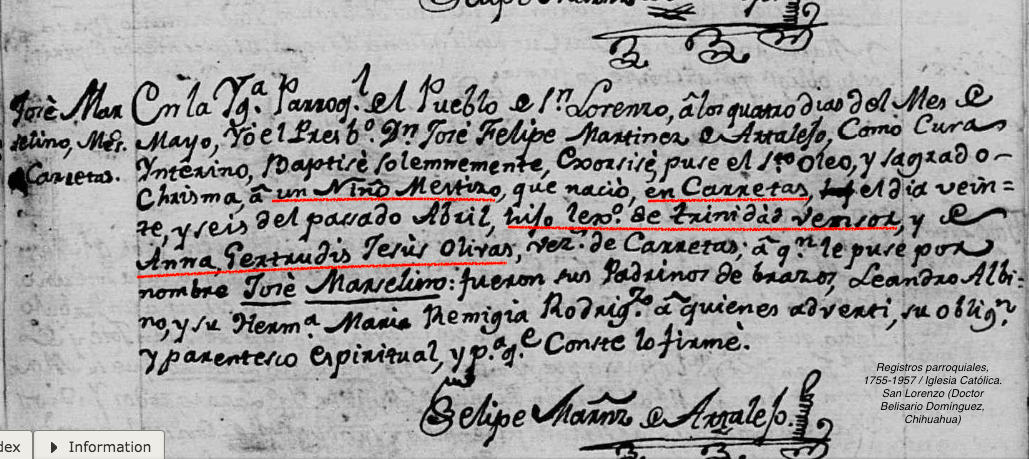 Felipe
Josè Mar
selino, Mes.
Carretas.
En la Yg.ª Parroq.l el Pueblo e S.n Lorenzo, â los quatro dias del Mes e
Mayo, Yo el Presb.o D.n Josè Felipe Martinez e Arralejo, Como Cura
Ynterino, Baptisè solemnemente, Exorsisè, puse el S.to Oleo, y sagrado
Chrisma, â un Niño Mestizo, que naciò, en Carretas, el dia vein=
te, y seis del passado Abril, hijo lexo. de trinidàd venzor, y e
Anna, Gertrudis Jesùs Olivas, vez.s de Carretas; â q.n le puse por
nombre Josè Marselino: fueron sus Padrinos de brazos, Leandro Albi=
no, y su Herm.ª Maria Remigia Rodrig.z â quienes advertì, su oblig.n
y parentesco èspiritual, y p.ª q.e Conste lo firmè.
Felipe Marñz e Arralejo.
Registros parroquiales,
1755-1957 / Iglesia Católica.
San Lorenzo (Doctor
Belisario Domínguez,
Chihuahua)
dex
Information